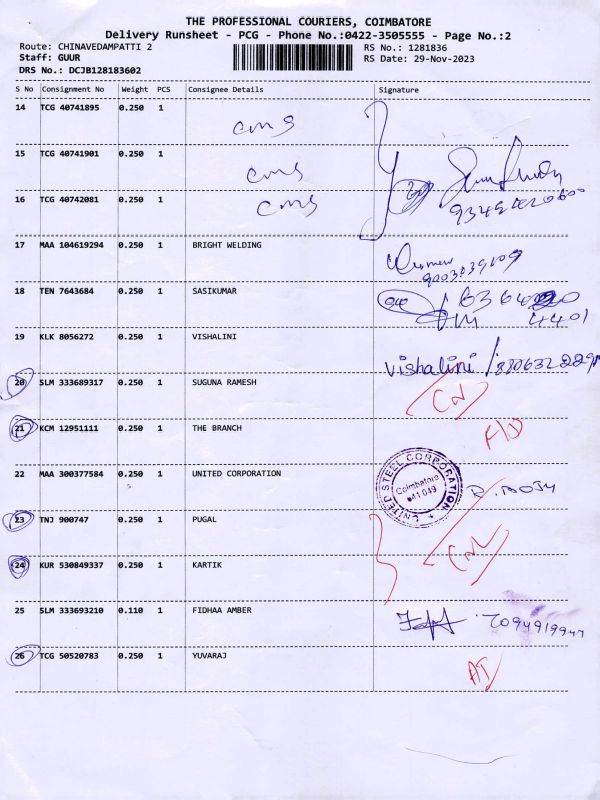 THE PROFESSIONAL COURIERS, COIMBATORE
Delivery Runsheet - PCG - Phone No.:0422-3505555 - Page No.:2
Route: CHINAVEDAMPATTI 2 RS No.: 1281836
Staff: GUUR RS Date: 29-Nov-2023
DRS No.: DCJB128183602
S No Consignment No Weight PCS Consignee Details Signature
14 TCG 40741895 0.250 1 cms
15 TCG 40741901 0.250 1 cms
16 TCG 40742081 0.250 1 cms
17 MAA 104619294 0.250 1 BRIGHT WELDING
18 TEN 7643684 0.250 1 SASIKUMAR
19 KLK 8056272 0.250 1 VISHALINI vishalini
20 SLM 333689317 0.250 1 SUGUNA RAMESH
21 KCM 12951111 0.250 1 THE BRANCH
22 MAA 300377584 0.250 1 UNITED CORPORATION UNITED STEEL CORPORATION Coimbatore
23 TNJ 900747 0.250 1 PUGAL
24 KUR 530849337 0.250 1 KARTIK
25 SLM 333693210 0.110 1 FIDHAA AMBER 7094919947
26 TCG 50520783 0.250 1 YUVARAJ